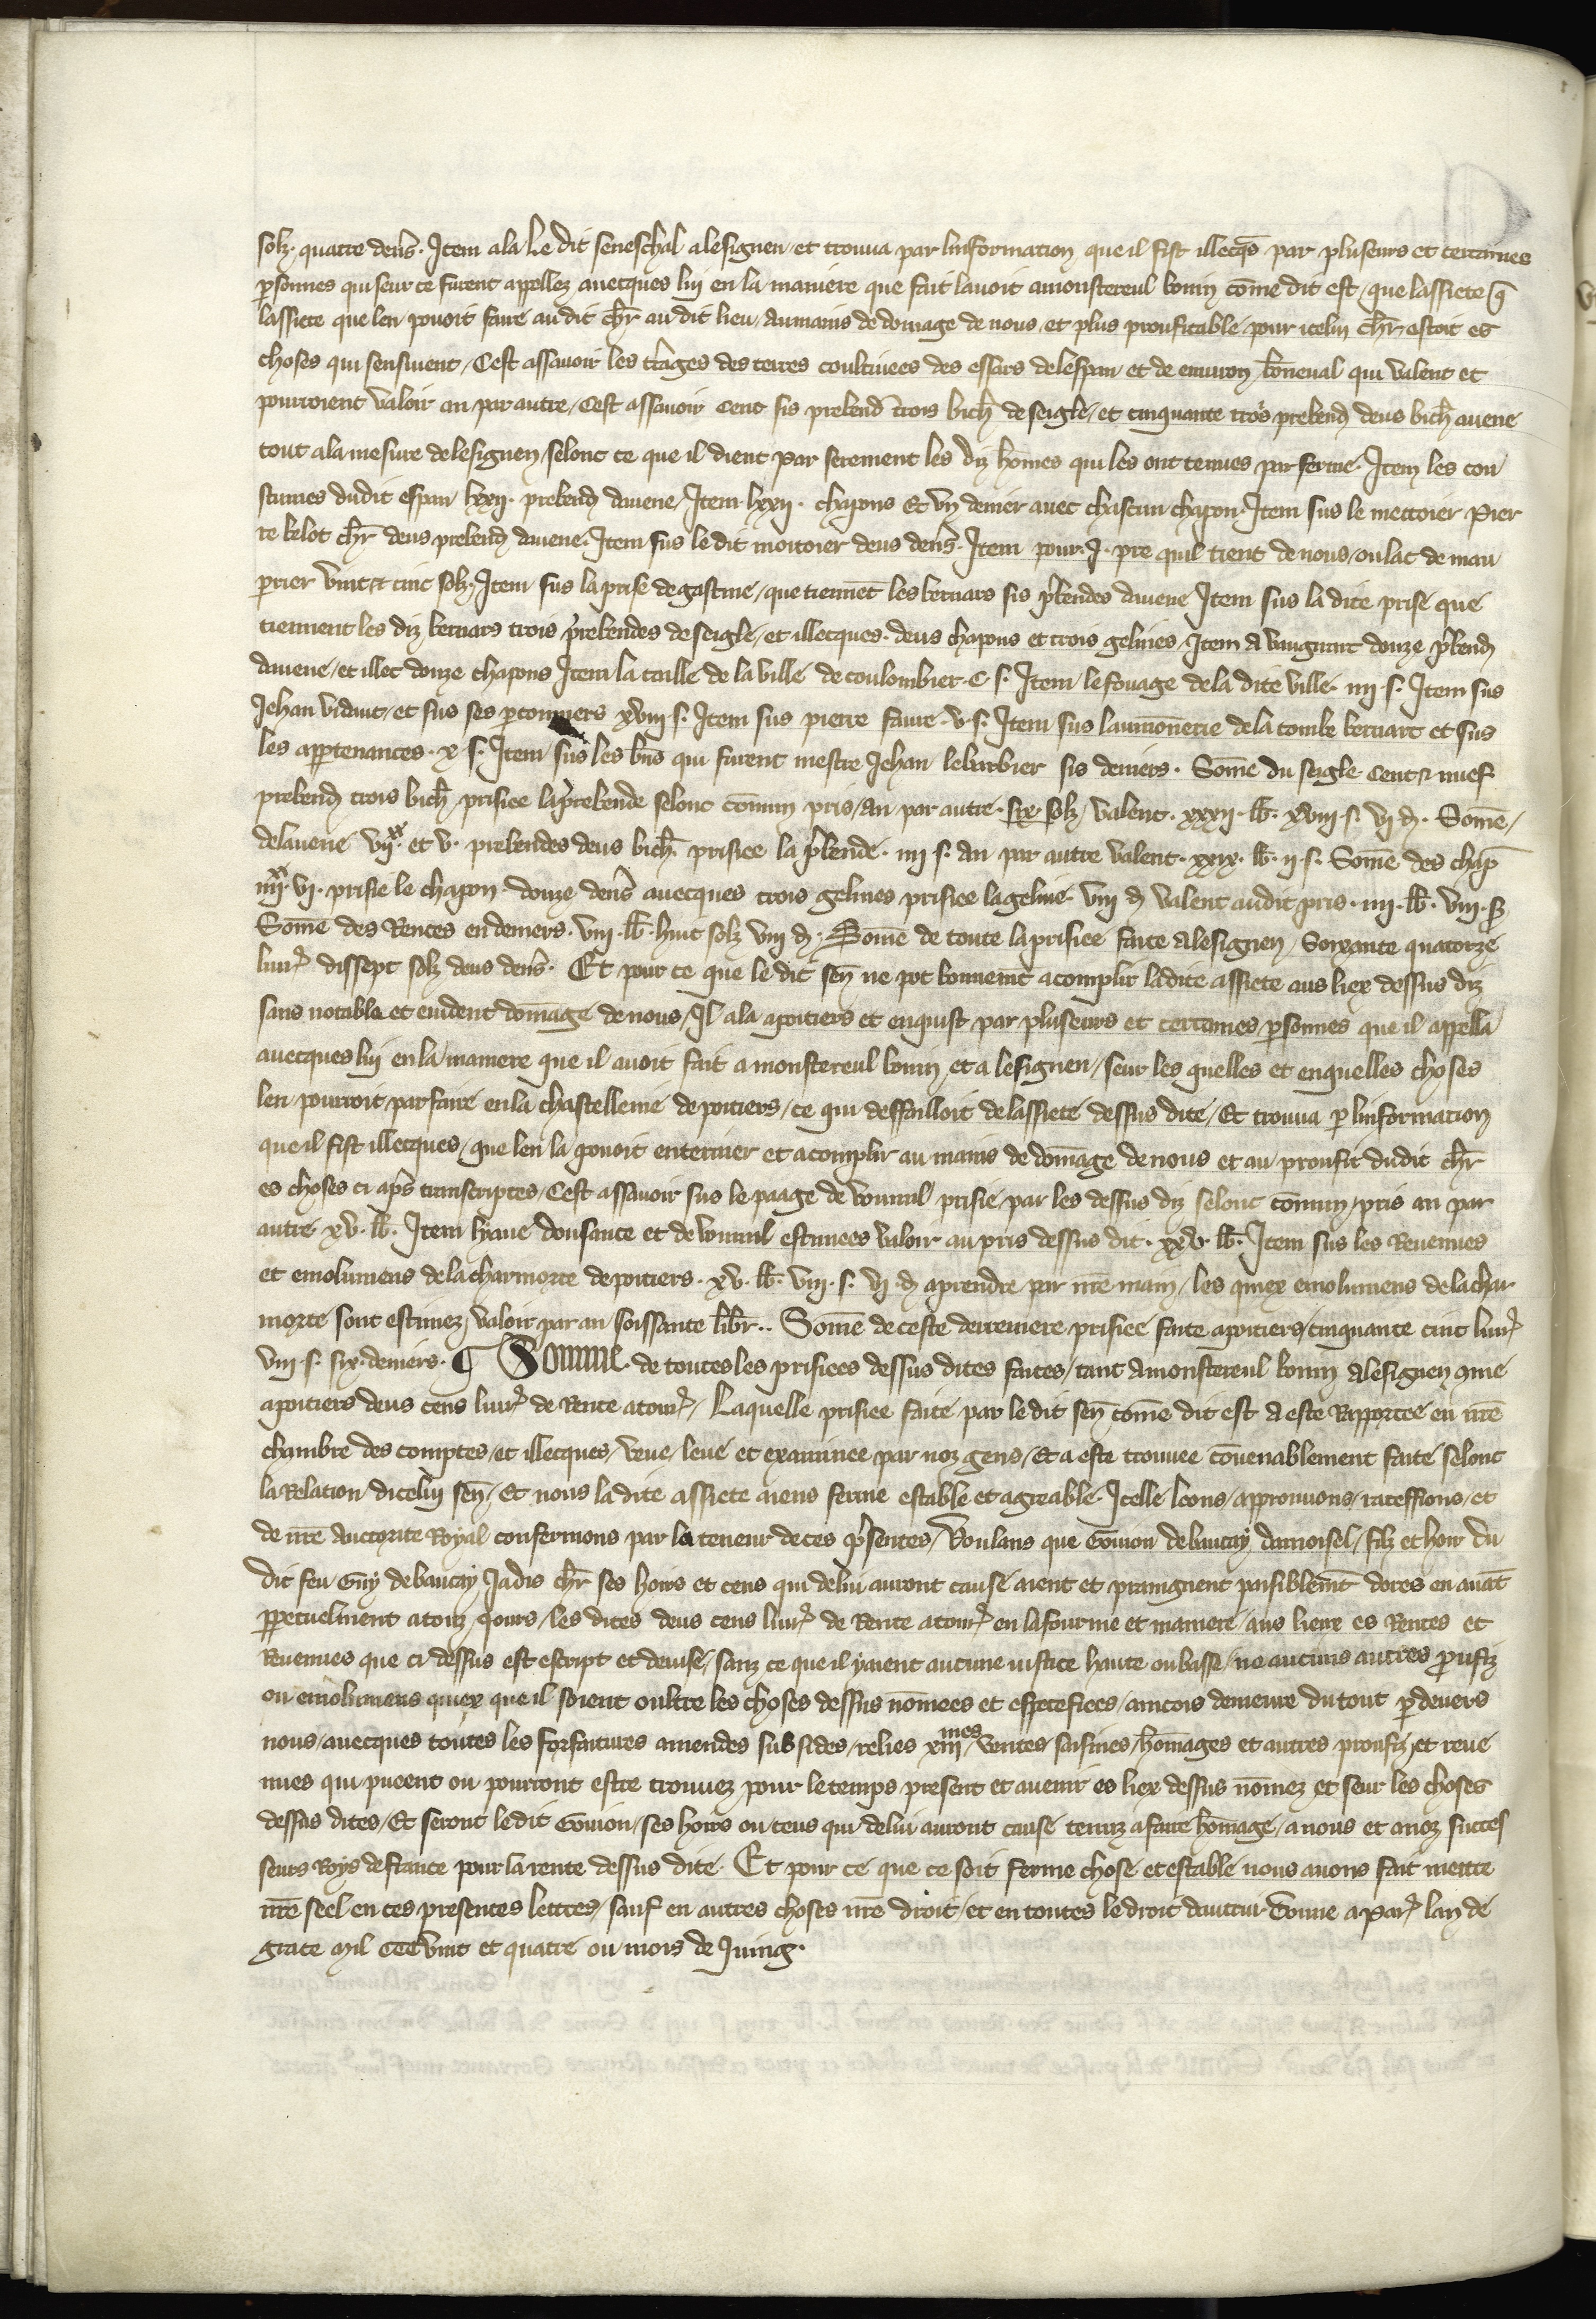 solz quatre den̄s. Item ala Le dit seneschal alesignen et trouva par linformation que il fist illecq̄s par pluseurs et certaines
ꝑsonnes qui seur ce furent appellez avecques lui en la maniere que fait lavoit amonstereul bonin com̄e dit est / que lassiete q̄
lassiete que len povoit faire au dit ch̄r au dit lieu / aumains de domage de nous / et plus proufitable pour icelui ch̄r estoit es
choses qui sensivent / Cest assavoir les t̄rages des terres coultivees des essars delespau et de environ bōneval qui valent et
pourroient valoir an par autre / Cest assavoir Cent sis prebend̄ trois bich̄ de seigle / et cinquante trois prebend̄ deus bich̄ avene
tout ala mesure delesignen / selonc ce que il dient par serement les diz hom̄es qui les ont tenues par ferme. Item les cou
stumes dudit espau lxxii. prebend̄ davene / Item lxxii. chapons Et vn denier avec chascun chapon. Item sus le mectoier Pier
re belot ch̄r deus prebend̄ davene. Item sus le dit moitoier deus den̄s. Item pour .I. pre quil tient de nous / ou lac de mau
prier vint & cinc solz / Item sus la prise degastine / que tiennēt les bernars sis p̄bendes davene Item sus la dite prise que
tiennent les diz bernars trois p̄rebendes de seigle / et illecques deus chapons et trois gelines / Item a vaugirart douze p̄bend̄
davene / et illec douze chapons Item la taille de la ville de coulombier. C s. Item le fouage dela dite ville. iiii s. Item sus
Jehan vidaut / et sus ses ꝑconniers xviii s. Item sus pierre faure. v. s. Item sus laumōnerie dela tombe bernart et sus
les appertenances. x s. Item sus les bn̄s qui furent mestre Jehan lebarbier sis deniers. Som̄e du seigle Cent & nuef
prebend̄ trois bich̄ prisiee lap̄rebende selonc com̄un pris / an par autre. six solz / valent. xxxii. lb̄. xviii s. vi d̄. Som̄e /
delavene vii.xx et v. prebendes deus bich̄ prisiee la p̄bende. iiii s. an par autre valent. xxix. lb̄. ii s. Som̄e des chap̄
iiii.xx vi. prisie le chapon douze den̄s avecques trois gelines prisiee lageline viii d̄ valent audit pris. iiii. lb̄. viii. s
Som̄e des Rentes en deniers. viii. lb̄. huit solz viii d̄. Som̄e de toute laprisiee faite alesignen / Soixante quatorze
livr̄ dissept solz deus den̄s. Et pour ce que le dit sen̄ ne pot bonnemēt acomplir ladite assiete aus liex dessus diz
sans notable et evident dom̄age de nous / Il ala apoitiers et enquist par pluseurs et certaines ꝑsonnes que il appella
avecques lui en la maniere que il avoit fait a monstereul bonin et a lesignen / seur les quelles et enquelles choses
len pourroit parfaire enla chastellenie de poitiers / ce qui deffailloit delassiete dessus dite / Et trouva ꝑ linformation
que il fist illecques / que len la povoit enteriner et acomplir au mains de dom̄age de nous et au proufit dudit ch̄r
es choses ci ap̄s transcriptes / Cest assavoir sus le paage de vouuil prisie par les dessus diz selonc com̄un pris an par
autre xv. lb̄. Item leaue donsance et de vouuil estimees valoir au pris dessus dit. xxv. lb̄. Item sus les Revenues
et emolumens de lacharmorte de poitiers. xv. lb̄. viii. s. vi d̄ aprendre par n̄re main / les quiex emolumens delachar
morte sont estimez valoir par an soissante libr̄.. Som̄e deceste derreniere prisiee faite apoitiers / cinquante cinc livr̄
viii s. six deniers. ¶ Somme. de toutes les prisiees dessus dites faites / tant amonstereul bonin alesignen ꝯme
apoitiers deus cens livr̄ de Rente atourn̄ / Laquelle prisiee faite par le dit sen̄ com̄e dit est a este Rapportee en n̄re
chambre des comptes / et illecques / veue / leue et examinee par noz gens / Et a este trouvee cōvenablement faite selonc
la Relation dicelui sen̄ / Et nous ladite assiete aiens ferme estable et agreable. Icelle loons / approuvons / rateffions / et
de n̄re auctorite Royal confermons par la teneur de ces p̄sentes / voulans que Gouion debaucay damoisel / filz et hoir du
dit feu Guy debaucay Jadis ch̄r ses hoirs et ceus qui delui auront cause aient et praingnent paisiblemēt dores en avāt
ꝑpetuelment atouz jours / les dites deus cens livr̄ de Rente atourn̄ en lafourme et maniere / aus lieux es Rentes et
Revenues que ci dessus est escript et devise / sanz ce que il yaient aucune iustice haute oubasse / ne aucuns autres proufiz
ou emolumens quiex que il soient oultre les choses dessus nom̄ees et especefiees / aincois demeure du tout ꝑ devers
nous / avecques toutes les forfaitures amendes subsides / reliés xiiimes ventes saisines / hom̄ages et autres proufiz et reve
nues qui pueent ou pourront estre trouvez pour le temps present et avenir es liex dessus nom̄ez et seur les choses
dessus dites / Et seront ledit Gouion / ses hoirs ou ceus qui delui auront cause tenuz afaire hom̄age / anous et anoz succes
seurs Roys defrance pour la rente dessus dite. Et pour ce que ce soit ferme chose et estable nous avons fait mettre
n̄re seel en ces presentes lettres / sauf en autres choses n̄re droit / et en toutes le droit dautrui Donne a Par̄ lan de
grace mil CCC vint et quatre ou mois de Juing.